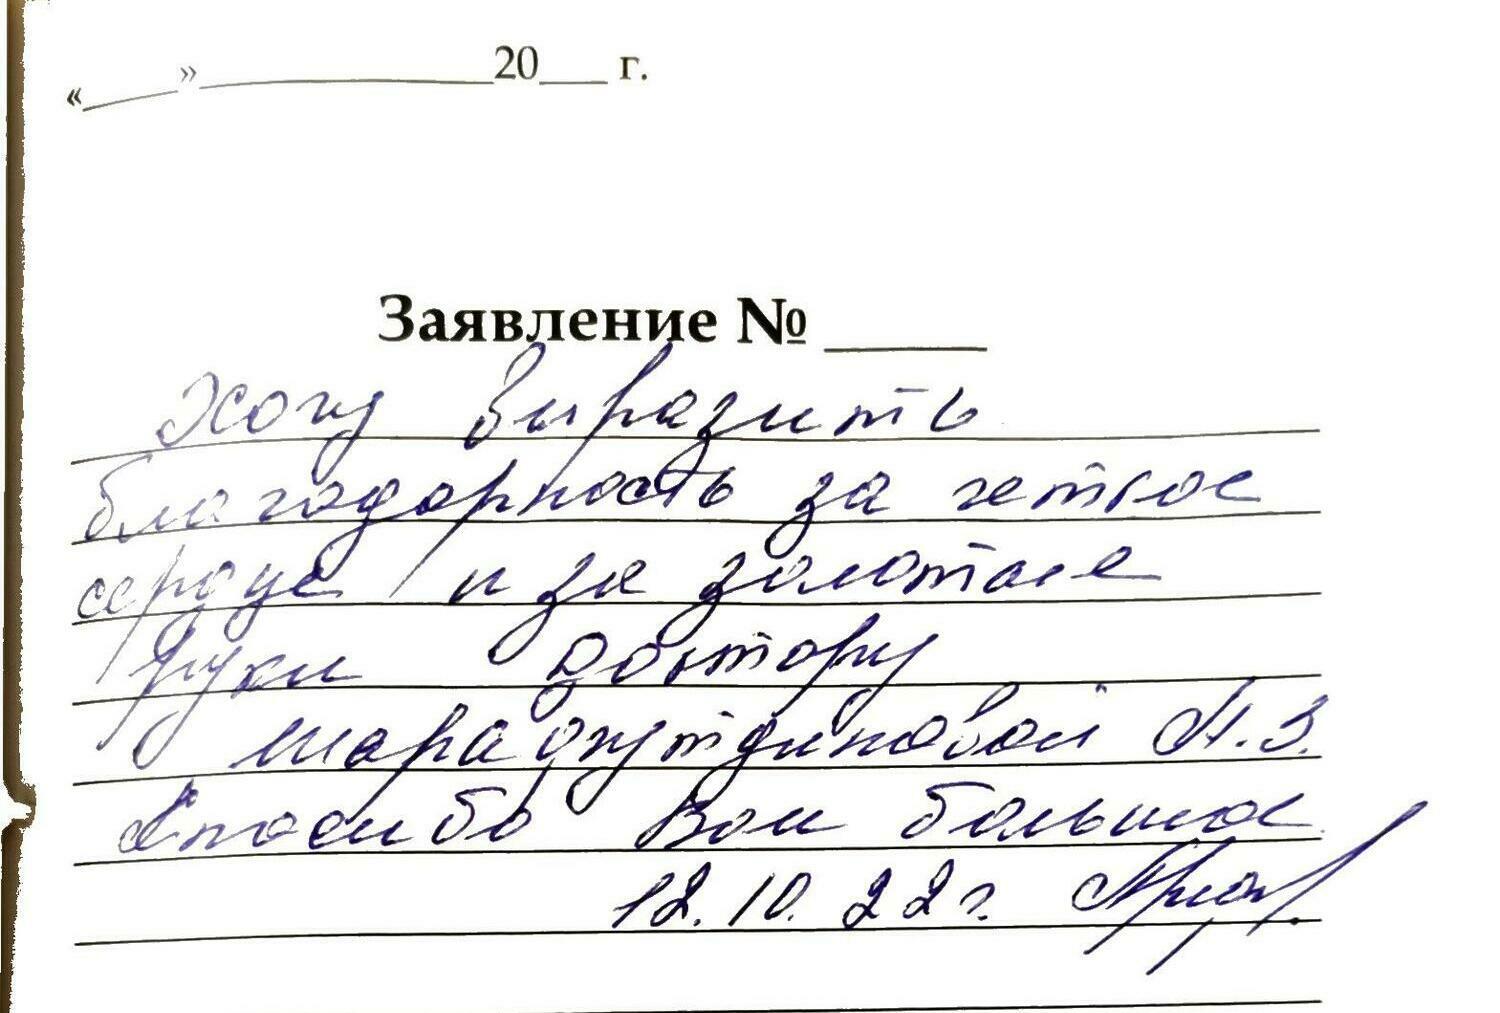 «____»____________20___ г.
Заявление № ______
Хочу выразить
благодарность за четкое
сердце и за золотые
руки доктору
Шарафутдиновой А.З.
Спасибо Вам большое
12.10.22г.